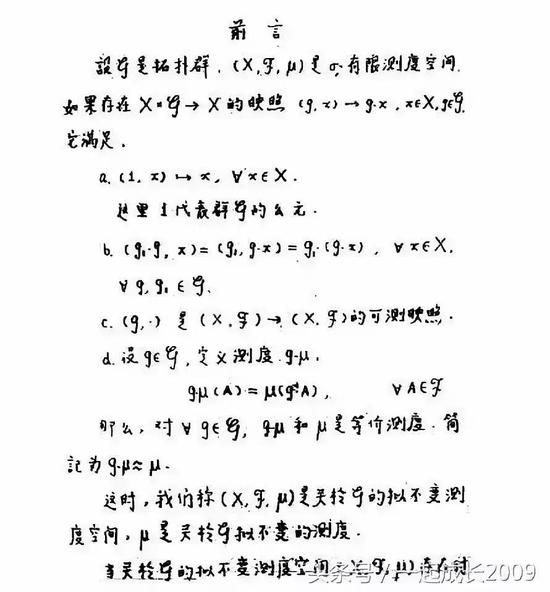 前言
設𝒢是拓扑群,(X,ℱ,μ)是σ-有限测度空间.
如果存在 X×𝒢→X 的映照 (g,x)→g·x, x∈X, g∈𝒢.
它满足.
a. (1,x)↦x, ∀x∈X.
这里1代表群𝒢的么元.
b. (g₁·g, x)=(g₁, g·x)=g₁·(g·x), ∀x∈X,
∀g, g₁∈𝒢.
c. (g,·) 是 (X,ℱ)→(X,ℱ)的可测映照.
d. 设g∈𝒢,定义测度 g·μ,
gμ(A)=μ(g⁻¹A), ∀A∈ℱ
那么,对∀g∈𝒢, g·μ和μ是等价测度.简
記为g·μ≈μ.
这时,我们称(X,ℱ,μ)是关於𝒢的拟不变测
度空间,μ是关於𝒢拟不变的测度.
当关於𝒢的拟不变测度空间(X,ℱ,μ)存在时
头条号/一起成长2009